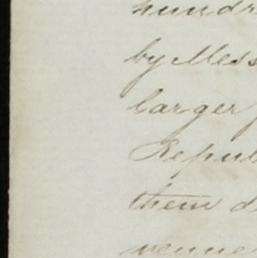 hundr
by Mess
larger
Repub
them d